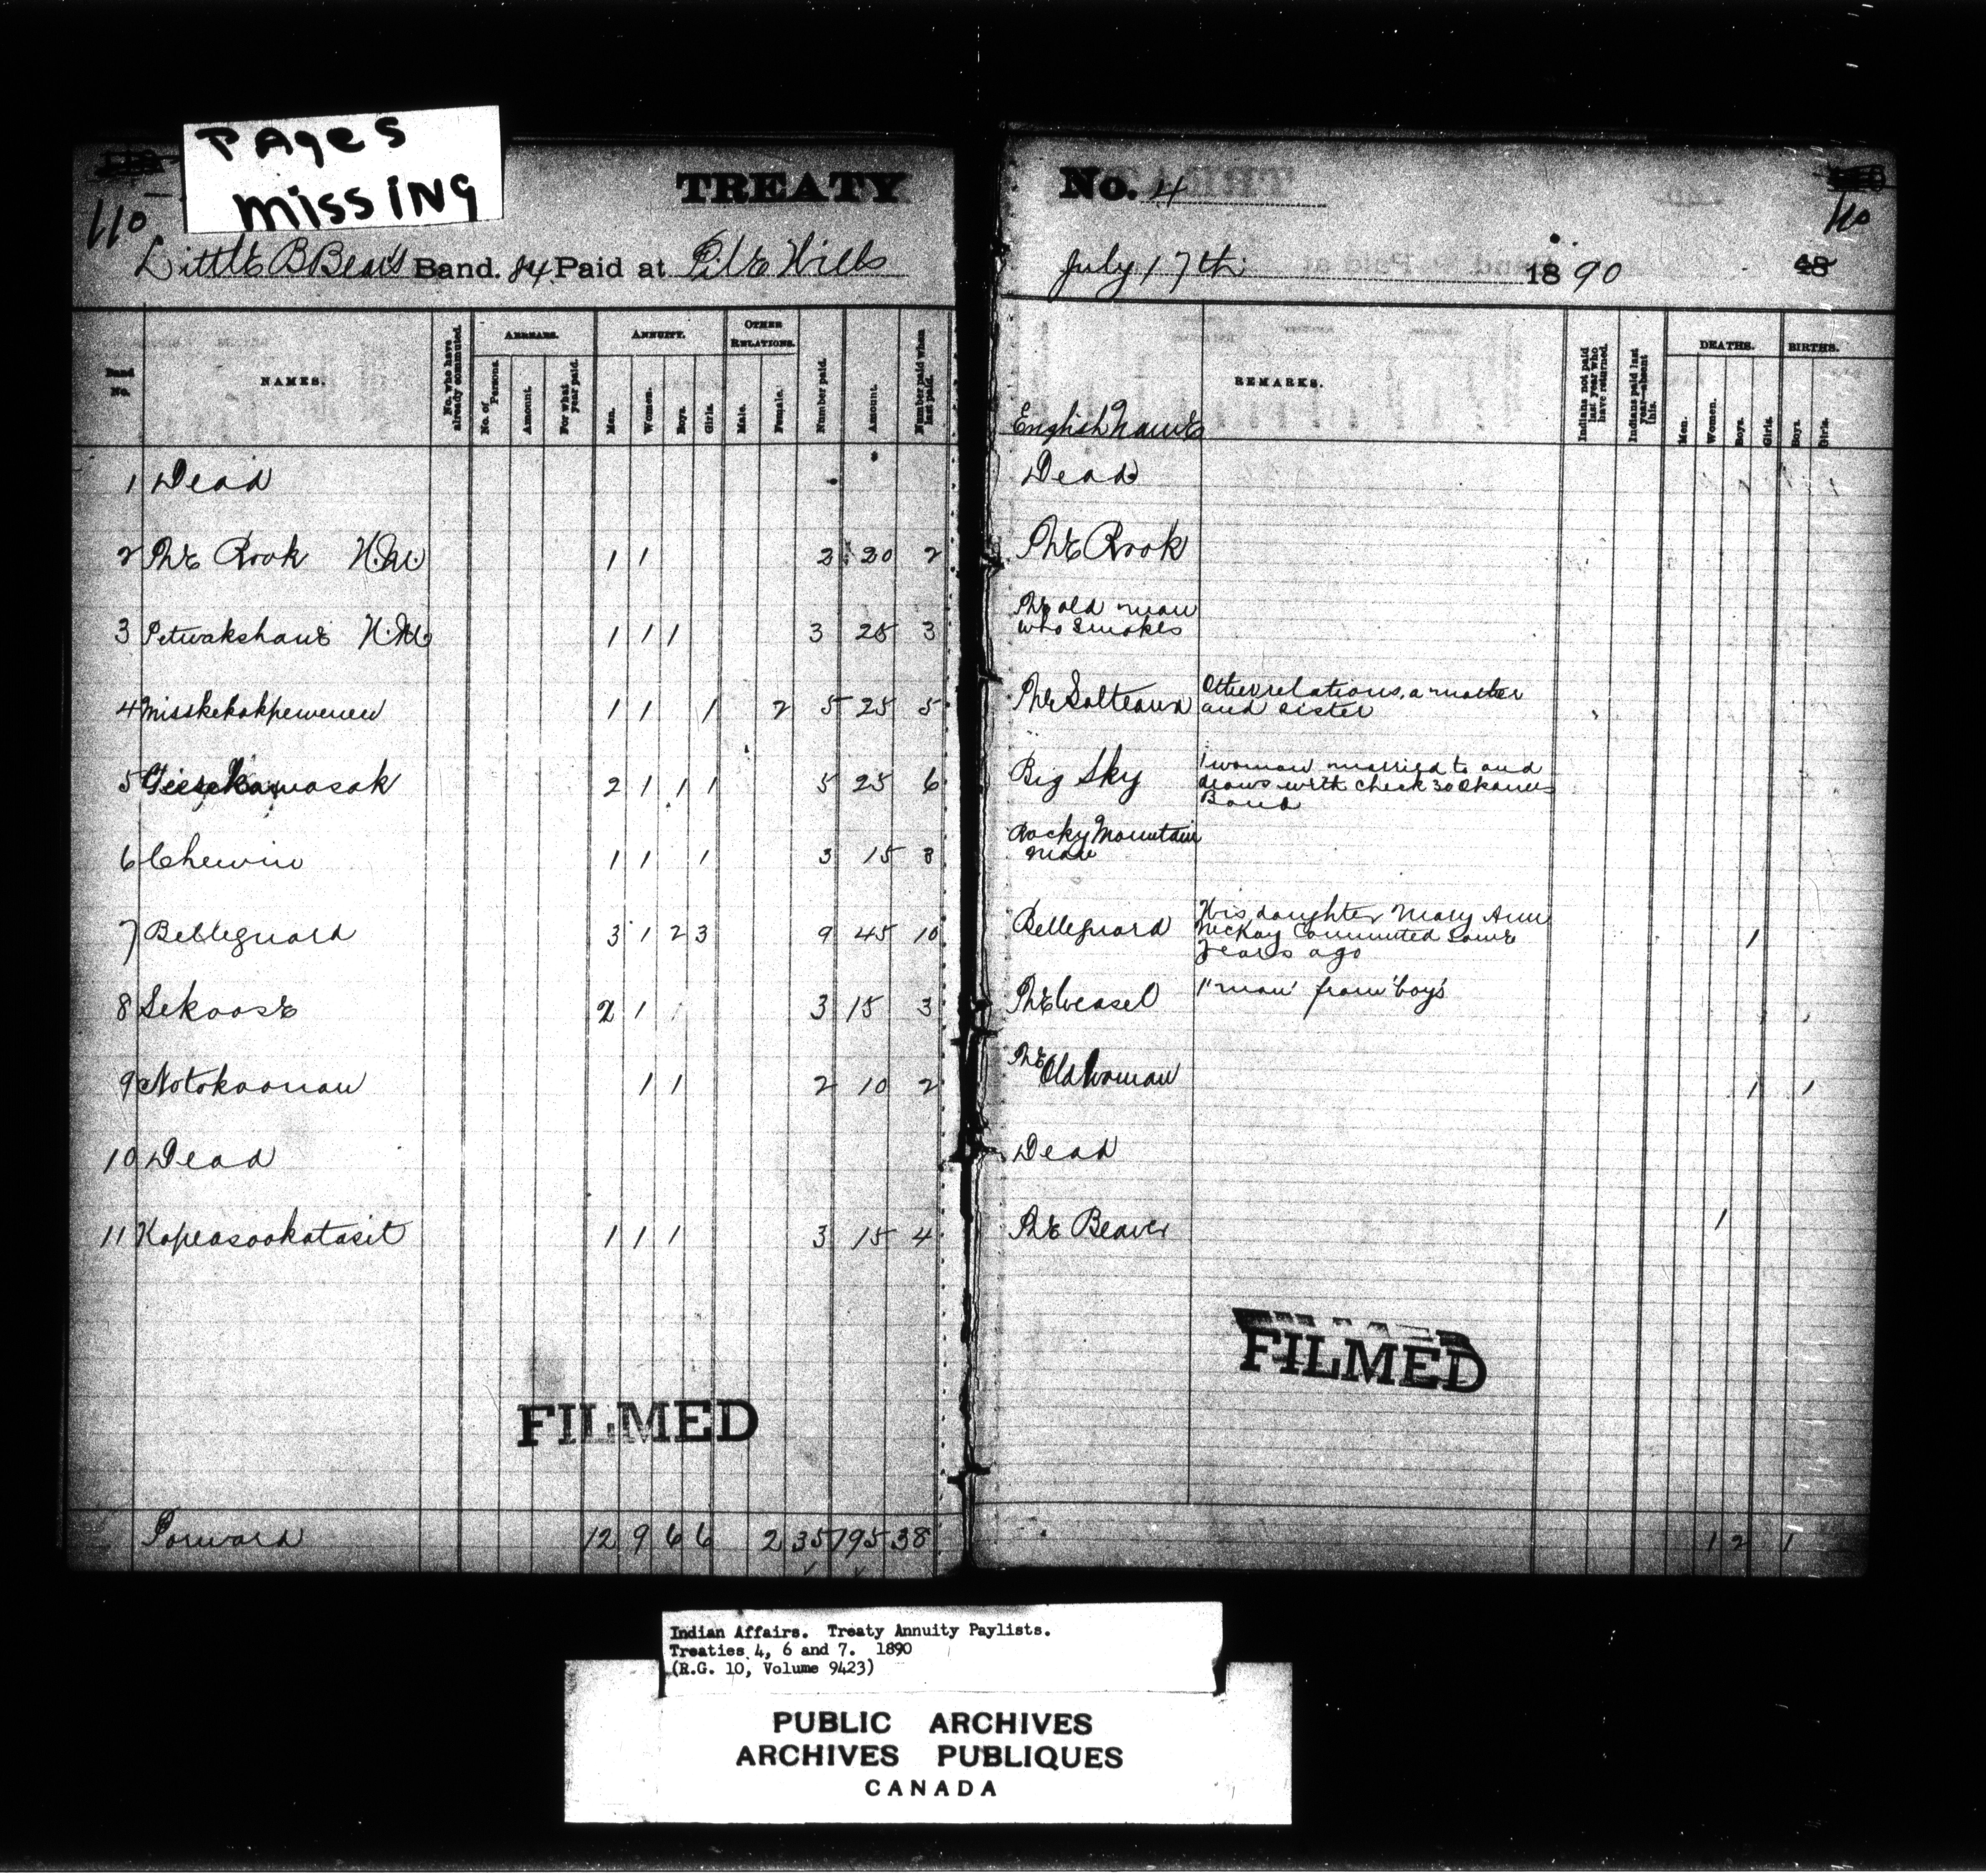 PAges
missing
110
TREATY
Little B Bear's Band. 84 Paid at File Hills
Band No.
NAMES.
No. who have already commuted.
ARREARS.
No. of Persons.
Amount.
For what year paid.
ANNUITY.
Men.
Women.
Boys.
Girls.
OTHER RELATIONS.
Male.
Female.
Number paid.
Amount.
Number paid when last paid.
1 Dead
2 The Rook H.M. 1 1 2 30 2
3 Petwakshane H.M. 1 1 1 3 25 3
4 Misskekakpewenew 1 1 1 2 5 25 5
5 2 1 1 1 5 25 6
6 Chewin 1 1 1 3 15 3
7 Belleguard 3 1 2 3 9 45 10
8 Sekoose 2 1 3 15 3
9 Notokoonaw 1 1 2 10 2
10 Dead
11 Kapeasookatasit 1 1 1 3 15 4
FILMED
Forward 12 9 6 6 2 35 195 38
No. 4
110
July 17th 1890
48
English Names
REMARKS.
Indians not paid last year who have returned.
Indians paid last year—absent this.
DEATHS.
Men.
Women.
Boys.
Girls.
BIRTHS.
Boys.
Girls.
Dead
The Rook
The old man
who smokes
The Salteaux
Other relations, a mother
and sister
Big Sky
1 woman married to and
draws with check 30 Okanees
Band
Rocky Mountain
man
Belleguard
His daughter Mary Ann
McKay commuted some
years ago
1
The Weasel
1 "man" from "boys"
The
Old Woman
1 1
Dead
The Beaver
1
FILMED
1 2 1
Indian Affairs. Treaty Annuity Paylists.
Treaties 4, 6 and 7. 1890
(R.G. 10, Volume 9423)
PUBLIC ARCHIVES
ARCHIVES PUBLIQUES
CANADA